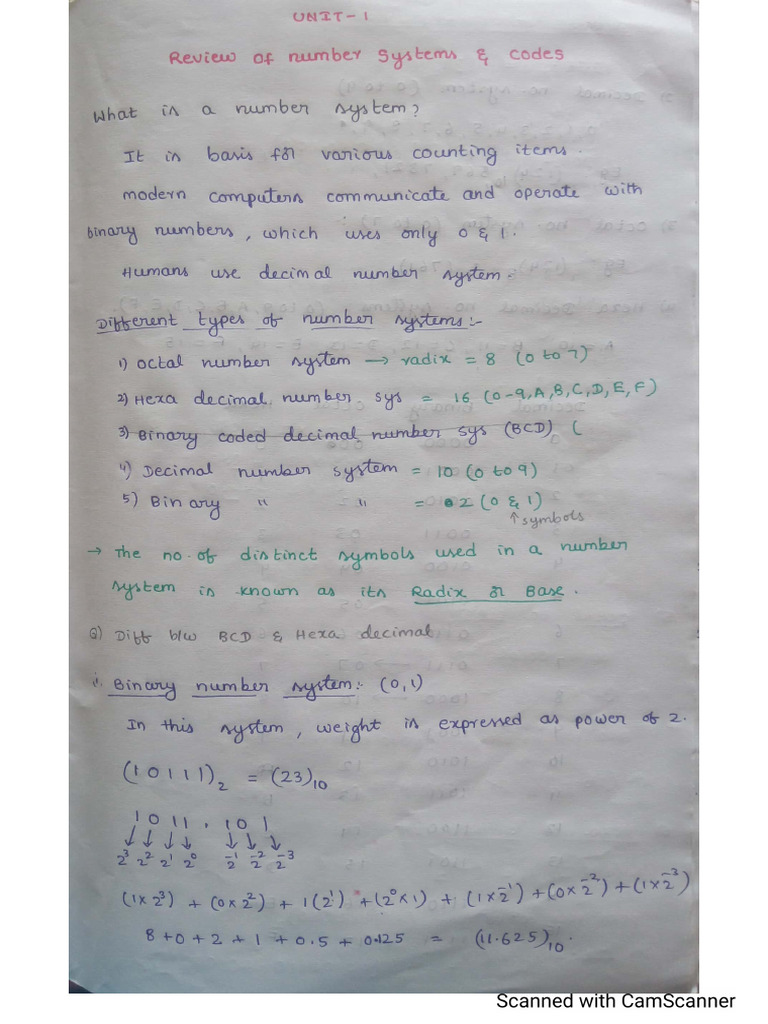 UNIT-1
Review of number systems & codes
What is a number system?
It is basis for various counting items.
modern computers communicate and operate with
binary numbers, which uses only 0 & 1.
Humans use decimal number system.
Different types of number systems:-
1) Octal number system → radix = 8 (0 to 7)
2) Hexa decimal number sys = 16 (0-9,A,B,C,D,E,F)
3) Binary coded decimal number sys (BCD) (
4) Decimal number system = 10 (0 to 9)
5) Binary " " = 2 (0 & 1)
↑ symbols
→ The no. of distinct symbols used in a number
system is known as its Radix or Base.
Q) Diff b/w BCD & Hexa decimal
1. Binary number system:- (0,1)
In this system, weight is expressed as power of 2.
(10111)₂ = (23)₁₀
1 0 1 1 . 1 0 1
2³ 2² 2¹ 2⁰ 2⁻¹ 2⁻² 2⁻³
(1×2³) + (0×2²) + 1(2¹) + (2⁰×1) + (1×2⁻¹) + (0×2⁻²) + (1×2⁻³)
8+0+2+1+0.5+0.125 = (11.625)₁₀.
Scanned with CamScanner